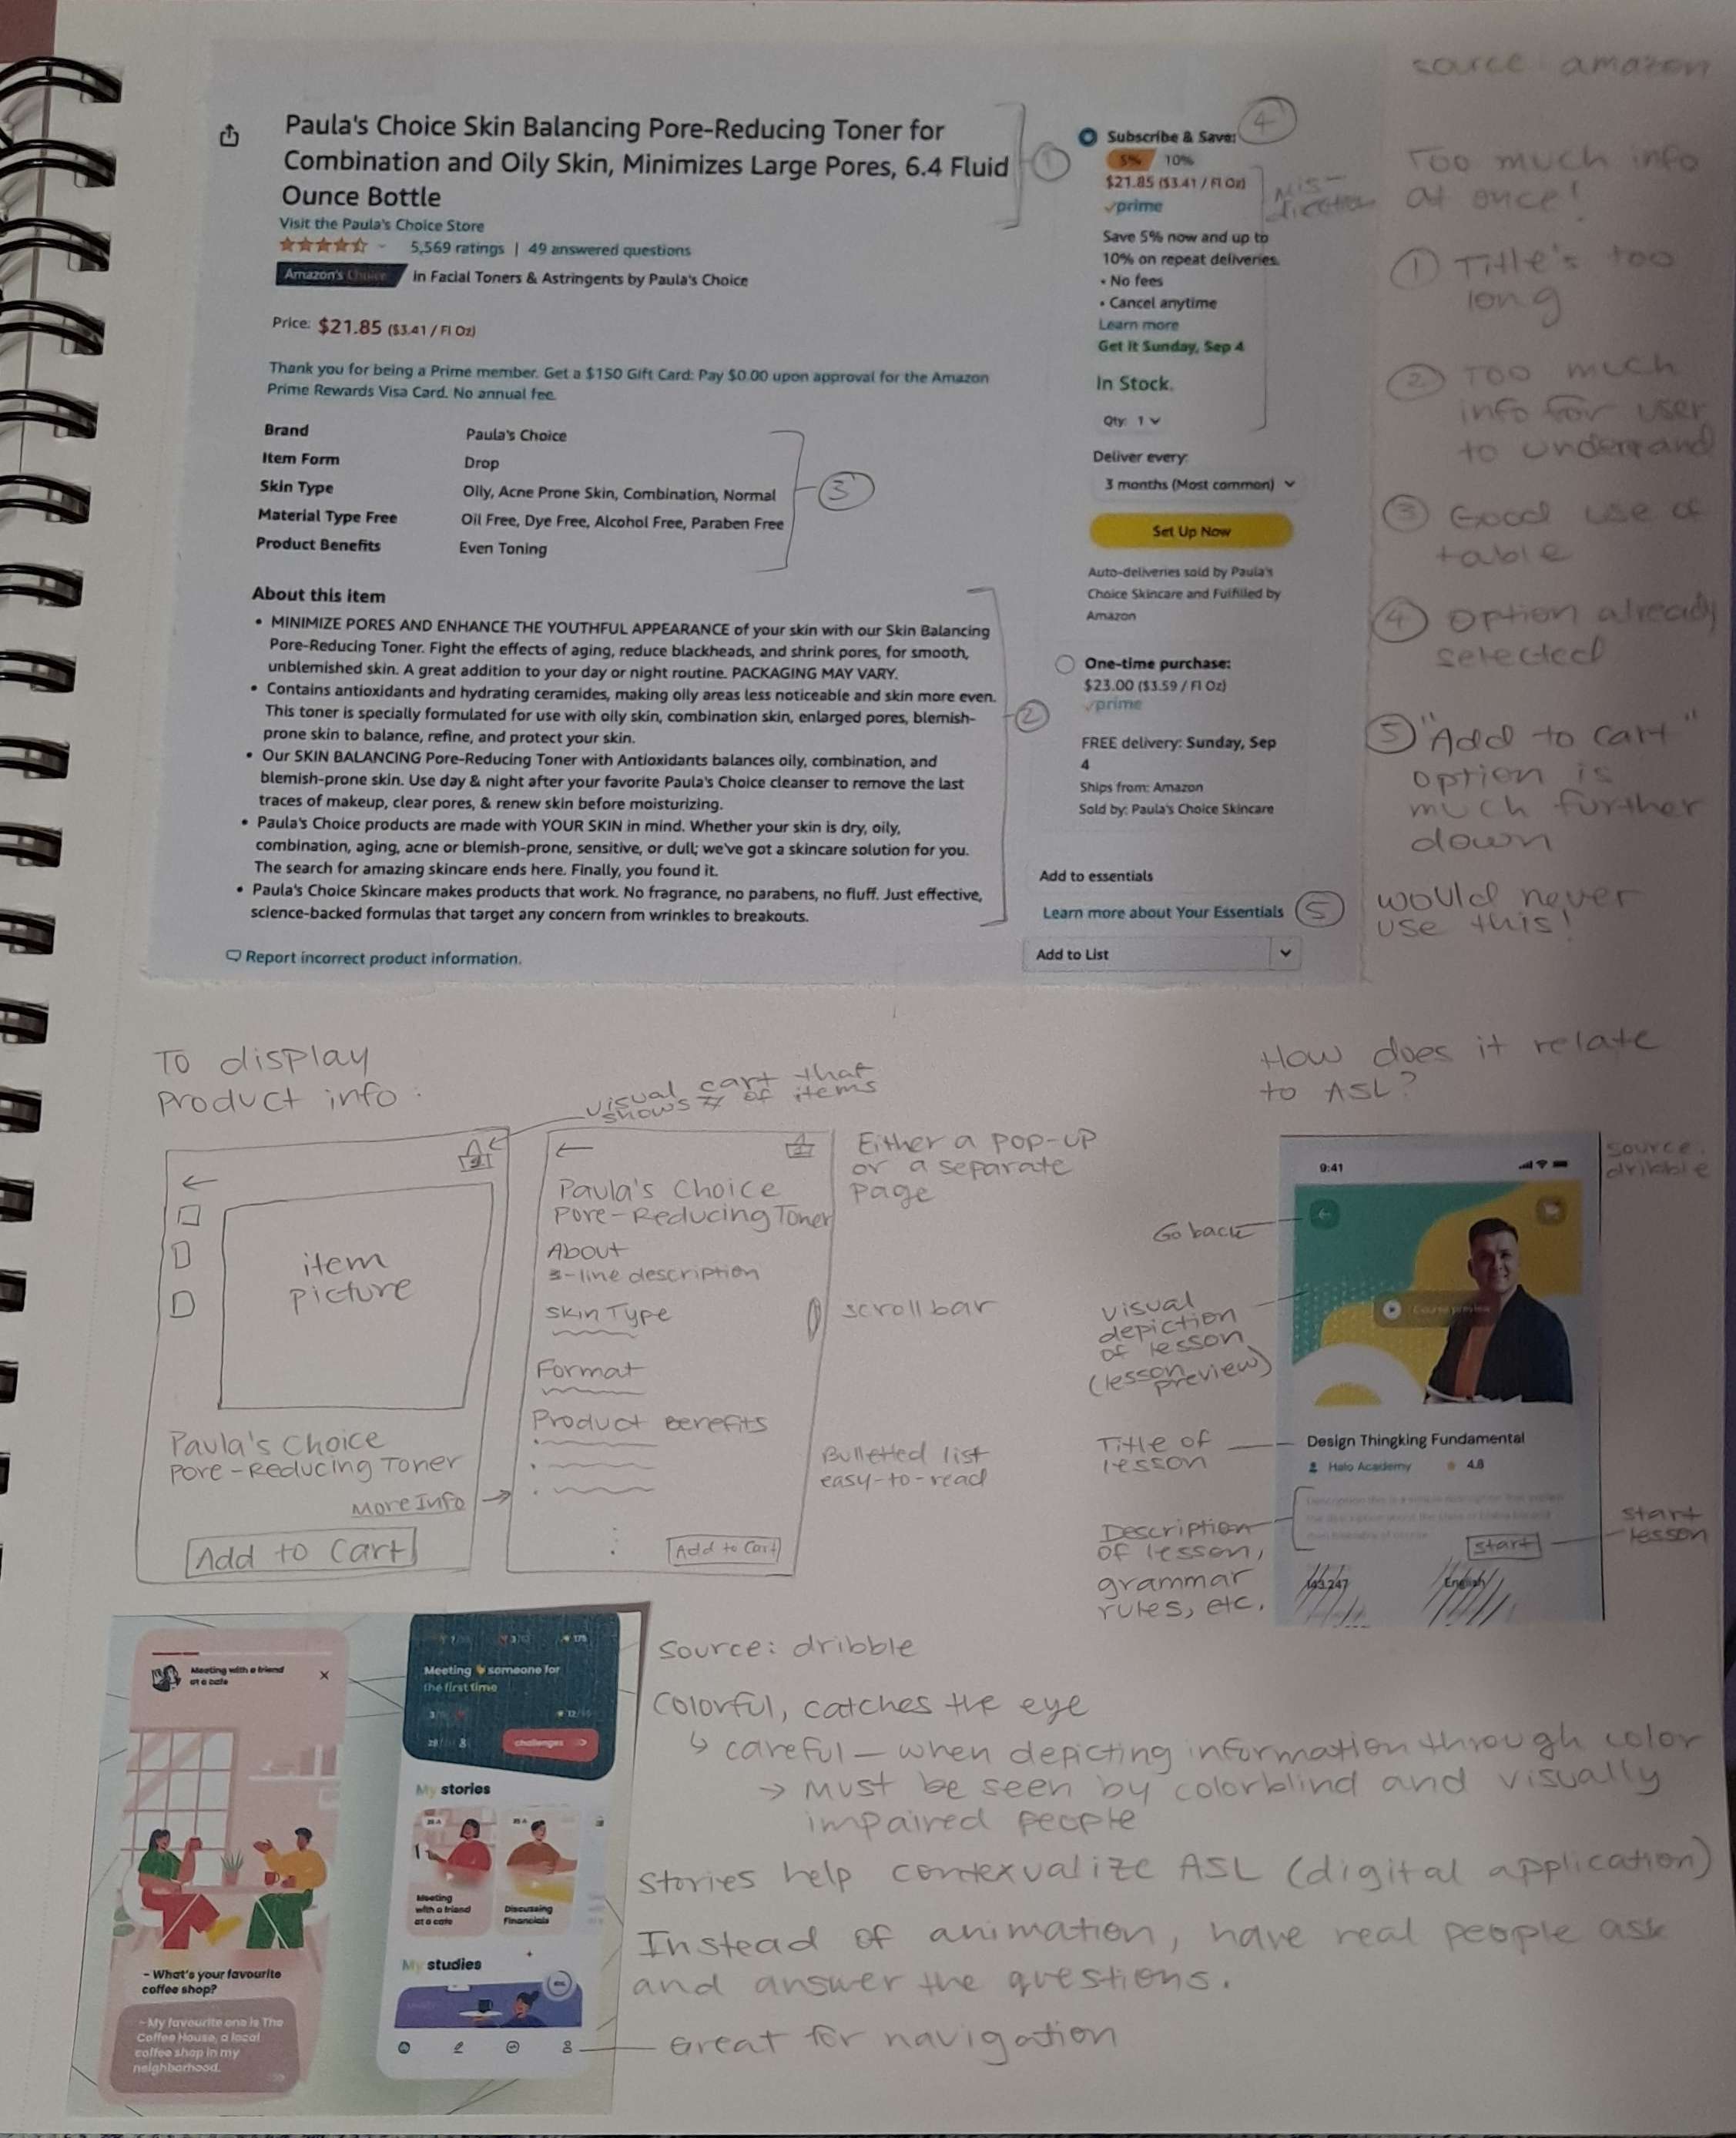 source: amazon
Paula's Choice Skin Balancing Pore-Reducing Toner for
Combination and Oily Skin, Minimizes Large Pores, 6.4 Fluid
Ounce Bottle
Visit the Paula's Choice Store
5,569 ratings | 49 answered questions
Amazon's Choice in Facial Toners & Astringents by Paula's Choice
Price: $21.85 ($3.41 / Fl Oz)
Thank you for being a Prime member. Get a $150 Gift Card: Pay $0.00 upon approval for the Amazon
Prime Rewards Visa Card. No annual fee.
Brand Paula's Choice
Item Form Drop
Skin Type Oily, Acne Prone Skin, Combination, Normal
Material Type Free Oil Free, Dye Free, Alcohol Free, Paraben Free
Product Benefits Even Toning
About this item
• MINIMIZE PORES AND ENHANCE THE YOUTHFUL APPEARANCE of your skin with our Skin Balancing
Pore-Reducing Toner. Fight the effects of aging, reduce blackheads, and shrink pores, for smooth,
unblemished skin. A great addition to your day or night routine. PACKAGING MAY VARY.
• Contains antioxidants and hydrating ceramides, making oily areas less noticeable and skin more even.
This toner is specially formulated for use with oily skin, combination skin, enlarged pores, blemish-
prone skin to balance, refine, and protect your skin.
• Our SKIN BALANCING Pore-Reducing Toner with Antioxidants balances oily, combination, and
blemish-prone skin. Use day & night after your favorite Paula's Choice cleanser to remove the last
traces of makeup, clear pores, & renew skin before moisturizing.
• Paula's Choice products are made with YOUR SKIN in mind. Whether your skin is dry, oily,
combination, aging, acne or blemish-prone, sensitive, or dull; we've got a skincare solution for you.
The search for amazing skincare ends here. Finally, you found it.
• Paula's Choice Skincare makes products that work. No fragrance, no parabens, no fluff. Just effective,
science-backed formulas that target any concern from wrinkles to breakouts.
Report incorrect product information.
1
3
2
Subscribe & Save: 4
5% 10%
$21.85 ($3.41 / Fl Oz)
prime
Mis-
direction
Save 5% now and up to
10% on repeat deliveries.
• No fees
• Cancel anytime
Learn more
Get it Sunday, Sep 4
In Stock.
Qty: 1
Deliver every:
3 months (Most common)
Set Up Now
Auto-deliveries sold by Paula's
Choice Skincare and Fulfilled by
Amazon
One-time purchase:
$23.00 ($3.59 / Fl Oz)
prime
FREE delivery: Sunday, Sep
4
Ships from: Amazon
Sold by: Paula's Choice Skincare
Add to essentials
Learn more about Your Essentials 5
Add to List
Too much info
at once!
1 Title's too
long
2 Too much
info for user
to understand
3 Good use of
table
4 Option already
selected
5 "Add to cart"
option is
much further
down
would never
use this!
To display
product info:
visual cart that
shows # of items
item
picture
Paula's Choice
Pore-Reducing Toner
More Info
Add to Cart
Paula's Choice
Pore-Reducing Toner
About
3-line description
Skin Type
Format
Product Benefits
Add to Cart
Either a pop-up
or a separate
page
scrollbar
Bulleted list
easy-to-read
How does it relate
to ASL?
source:
dribble
9:41
Go back
visual
depiction
of lesson
(lesson
preview)
Course preview
Title of
lesson
Design Thingking Fundamental
Halo Academy 4.8
Description
of lesson,
grammar
rules, etc.
Start
start
lesson
143.247 English
Meeting with a friend
at a cafe
- What's your favourite
coffee shop?
- My favourite one is The
Coffee House, a local
coffee shop in my
neighborhood.
175
Meeting someone for
the first time
challenges
My stories
Meeting
with a friend
at a cafe
Discussing
Financials
My studies
source: dribble
Colorful, catches the eye
↳ careful — when depicting information through color
→ must be seen by colorblind and visually
impaired people
Stories help contexualize ASL (digital application)
Instead of animation, have real people ask
and answer the questions.
Great for navigation